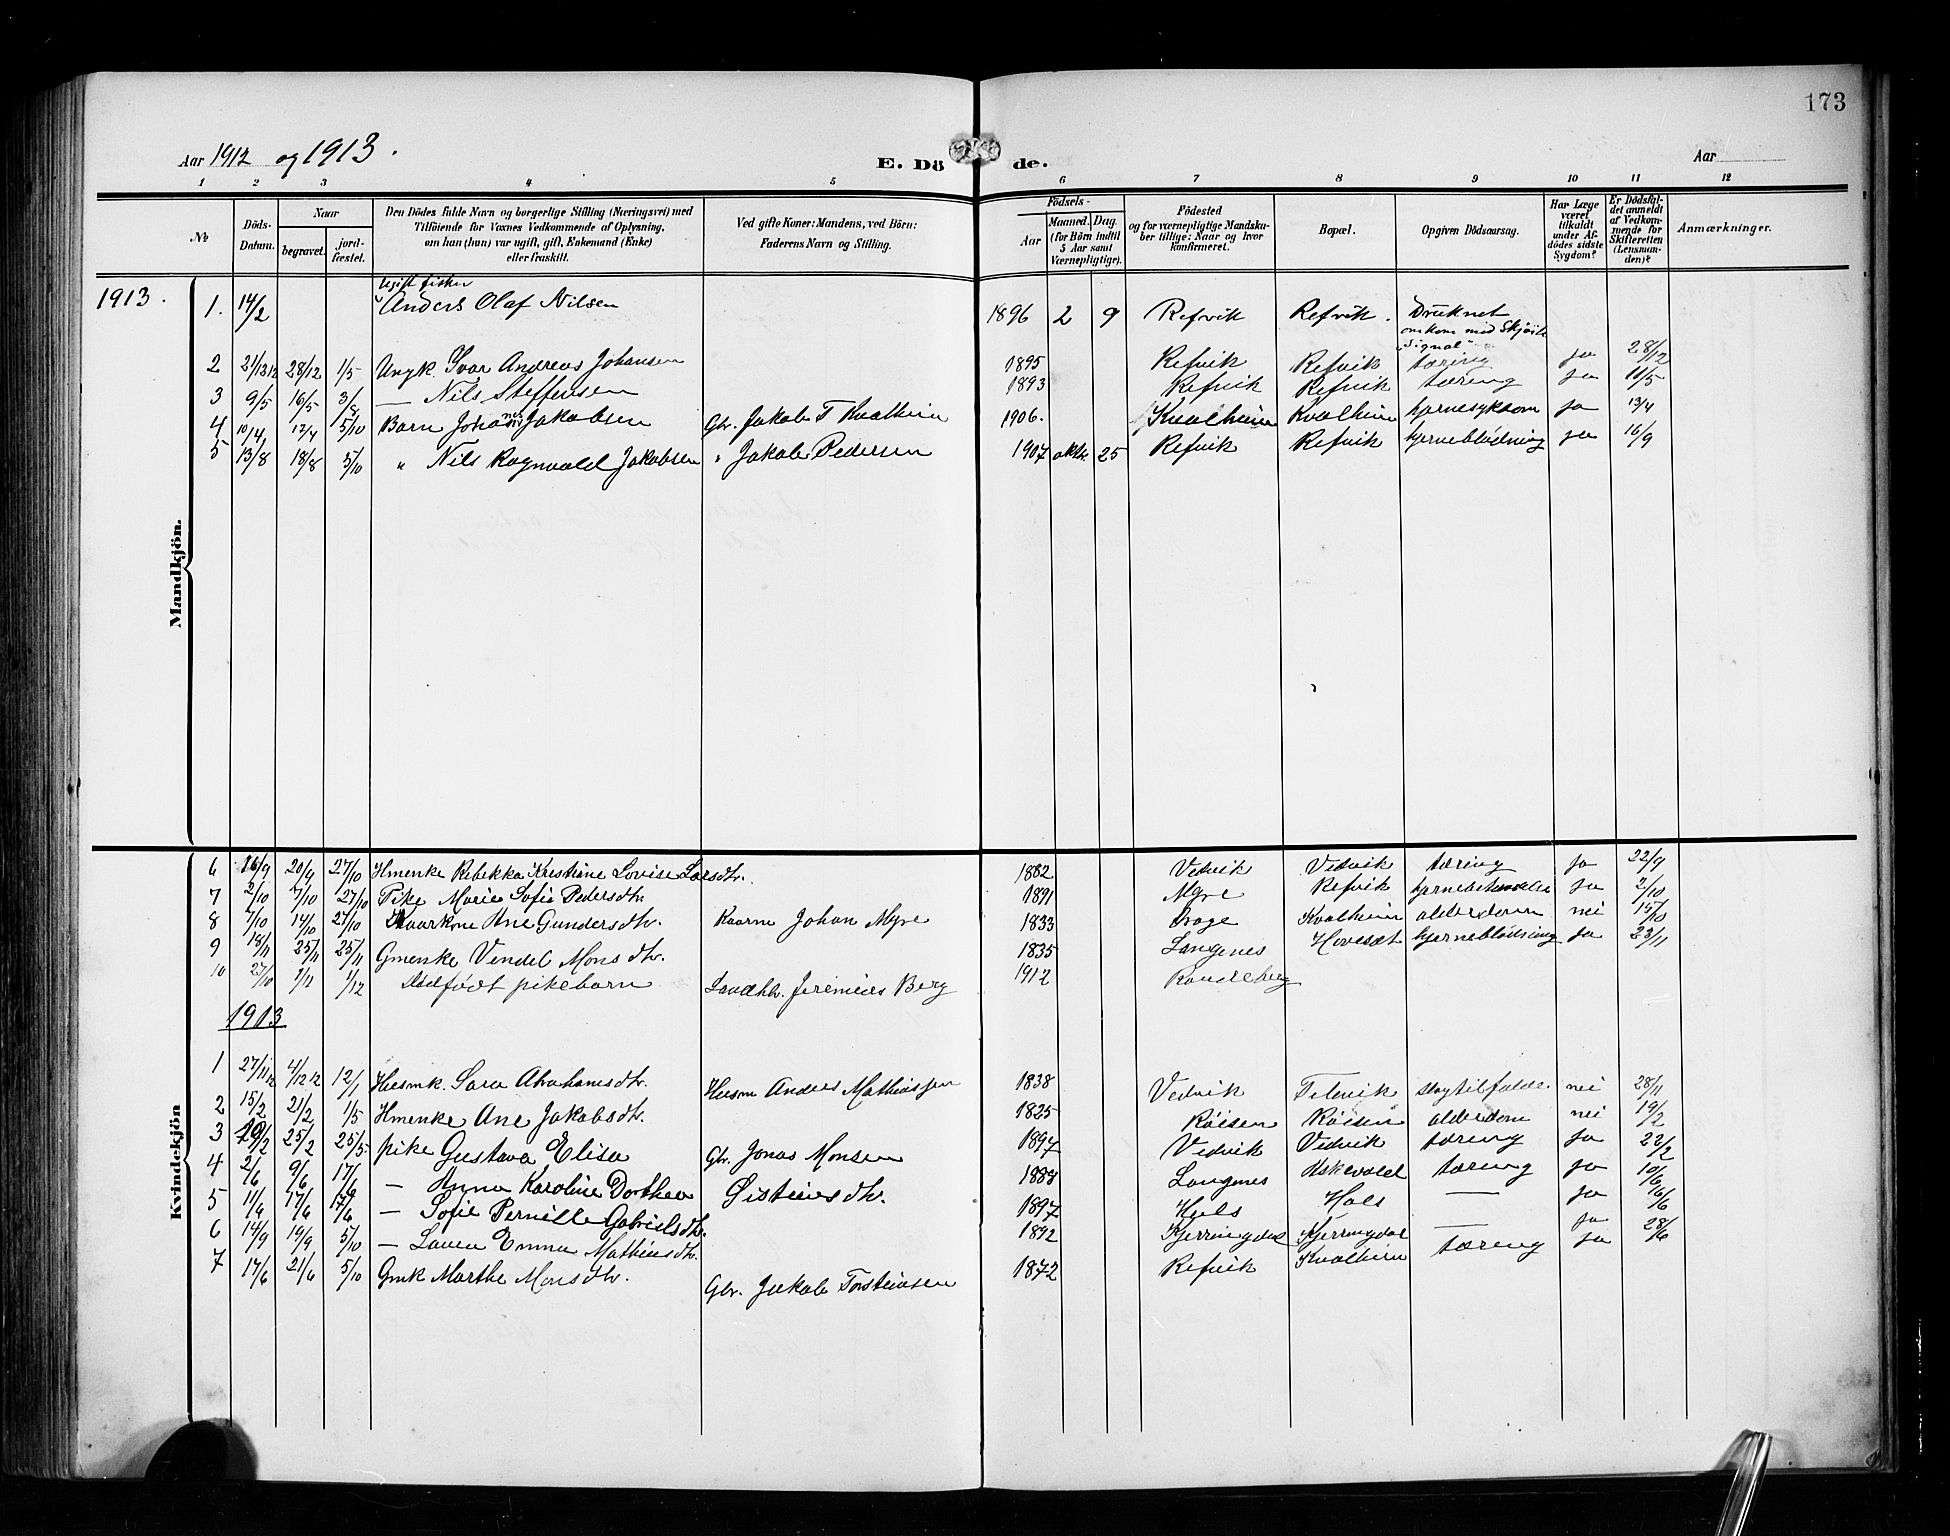 173
Aar 1912 og 1913.
E. Dö de.
Aar
1 2 3 4 5 6 7 8 9 10 11 12
№
Döds-Datum.
Naar
begravet.
jord-fæstet.
Den Dödes fulde Navn og borgerlige Stilling (Næringsvei) med
Tilföiende for Voxnes Vedkommende af Oplysning,
om han (hun) var ugift, gift, Enkemand (Enke)
eller fraskilt.
Ved gifte Koner: Mandens, ved Börn:
Faderens Navn og Stilling.
Födsels-
Aar
Maaned. Dag.
(for Börn indtil
5 Aar samt
Værnepligtige).
Födested
og for værnepligtige Mandska-
ber tillige: Naar og hvor
konfirmeret.
Bopæl.
Opgiven Dödsaarsag.
Har Læge
været
tilkaldt
under Af-
dödes sidste
Sygdom?
Er Dödsfal-
det anmeldt
af Vedkom-
mende for
Skifteretten
(Lensman-
den)?
Anmærkninger.
Mandkjön.
1913.
ugift fisker
1. 14/2 Anders Olaf Nilsen 1896 2 9 Refvik Refvik. Druknet
omkom med Skjöite
"Signal"
2 21/12 12 28/12 1/5 Ungk. Ivar Andreas Johansen 1895 Refvik Refvik tæring ja 28/12
3 9/5 16/5 3/8 — Nils Steffensen 1893 Refvik Refvik tæring ja 11/5
4 10/4 17/4 5/10 Barn Johannes Jakobsen Gbr. Jakob T Kvalheim 1906. Kvalheim Kvalheim hjernesykdom ja 13/4
5 13/8 18/8 5/10 " Nils Ragnvald Jakobsen " Jakob Pedersen 1907 oktbr. 25 Refvik Refvik hjerneblödning ja 16/9
Kvindekjön
6 16/9 20/9 27/10 Hmenke Rebekka Kristiane Lovise Larsdtr. 1882 Vedvik Vedvik tæring ja 22/9
7 2/10 7/10 27/10 Pike Marie Sofie Pedersdtr. 1891 Myre Refvik ja 2/10
8 7/10 14/10 27/10 Kaarkone Ane Gundersdtr. Kaarm Johan Myre 1833 Drage Kvalheim alderdom nei 15/10
9 18/11 25/11 25/11 Gmenke Vendel Monsdtr. 1835 Langenes Hovesæt hjerneblödning ja 23/11
10 27/10 1/11 1/12 Dødfødt pikebarn Landh. Jeremias Berg 1912 Raudeberg
1913
1 27/11 12 4/12 12 12/1 Husmk. Sara Abrahamsdtr. Husm Anders Mathiassen 1838 Vedvik Vedvik slagtilfælde. nei 28/11
2 15/2 21/2 1/5 Hmenke Ane Jakobsdtr. 1825 Røisen Røisen alderdom nei 19/2
3 19/2 25/2 25/5 pike Gustava Elisa Gbr. Jonas Monsen 1897 Vedvik Vedvik tæring ja 22/2
4 2/6 9/6 17/6 — Anna Karoline Dorthea Øistensdtr. 1883 Langenes Askevold tæring ja 10/6
5 11/6 17/6 17/6 — Sofie Pernille Gabrielsdtr. 1897 Hals Hals — ja 16/6
6 14/9 19/9 5/10 — Laura Emma Mathiasdtr. 1892 Kjerringdal Kjerringdal — ja
7 17/6 21/6 5/10 Gmk Marthe Monsdtr. Gbr. Jakob Torsteinsen 1872 Refvik Kvalheim tæring ja 28/6